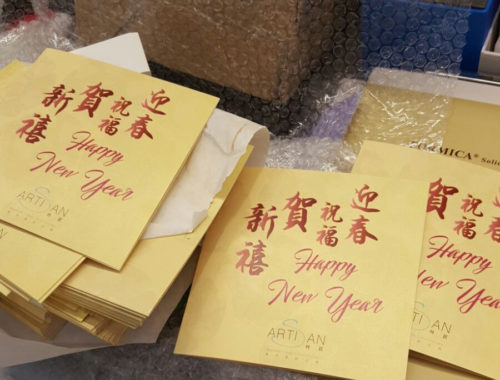 迎春
祝福
賀
新禧
Happy
New Year
ARTISAN
迎春
祝福
賀
新禧
Happy
New Year
ARTISAN
MICA® Solid
迎春
祝福
賀
Happy
New
ARTI